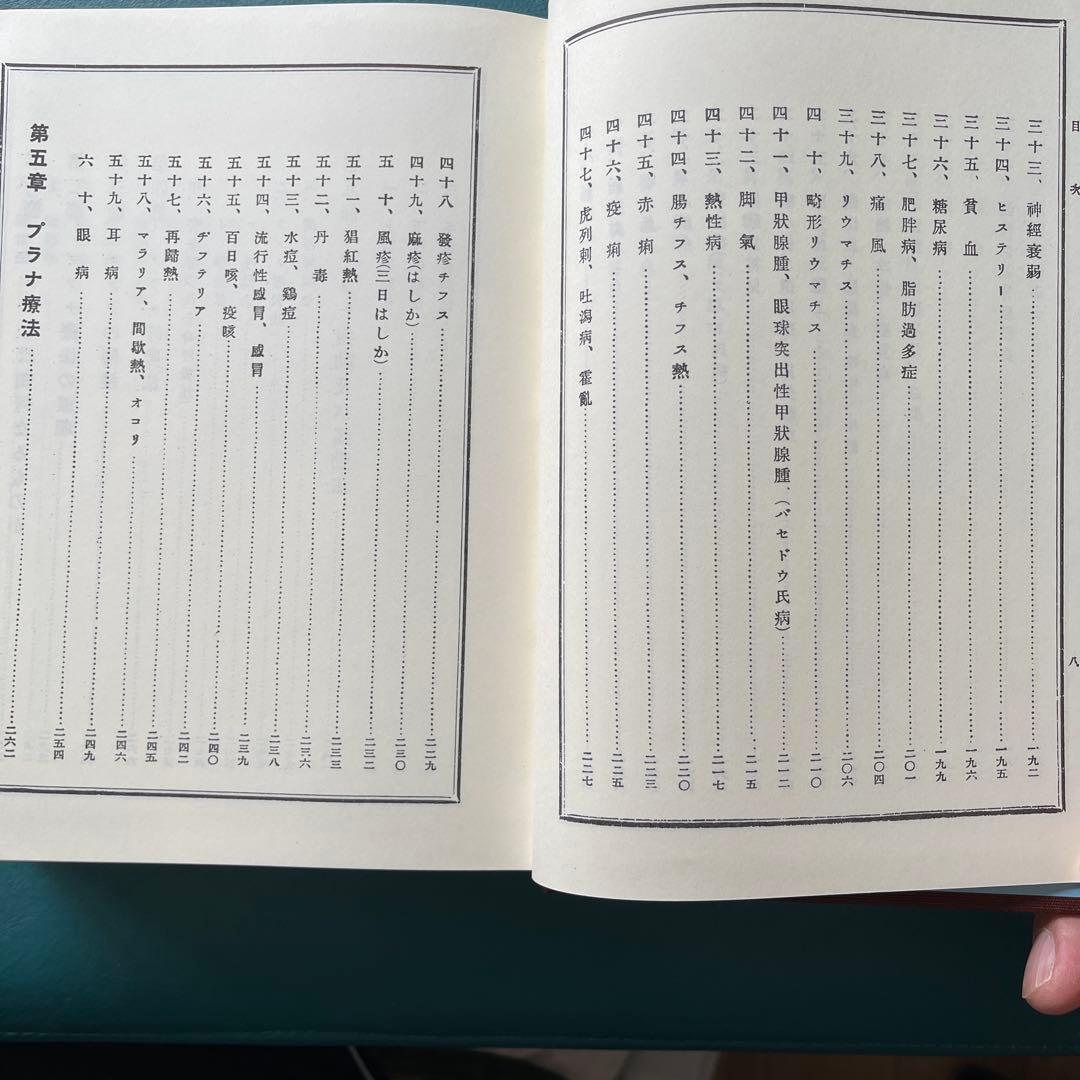 目次 八
三十三、神經衰弱……一九二
三十四、ヒステリー……一九五
三十五、貧血……一九六
三十六、糖尿病……一九九
三十七、肥胖病、脂肪過多症……二〇一
三十八、痛風……二〇四
三十九、リウマチス……二〇六
四十、畸形リウマチス……二一〇
四十一、甲狀腺腫、眼球突出性甲狀腺腫、(バセドウ氏病)……二一二
四十二、脚氣……二一五
四十三、熱性病……二一七
四十四、腸チフス、チフス熱……二二〇
四十五、赤痢……二二三
四十六、疫痢……二二五
四十七、虎列剌、吐瀉病、霍亂……二二七
四十八、發疹チフス……二二九
四十九、麻疹(はしか)……二三〇
五十、風疹(三日はしか)……二三二
五十一、猖紅熱……二三三
五十二、丹毒……二三六
五十三、水痘、鷄痘……二三八
五十四、流行性感冒、感冒……二三九
五十五、百日咳、疫咳……二四〇
五十六、ヂフテリア……二四二
五十七、再歸熱……二四五
五十八、マラリア、間歇熱、オコリ……二四六
五十九、耳病……二四九
六十、眼病……二五四
第五章 プラナ療法……二六二